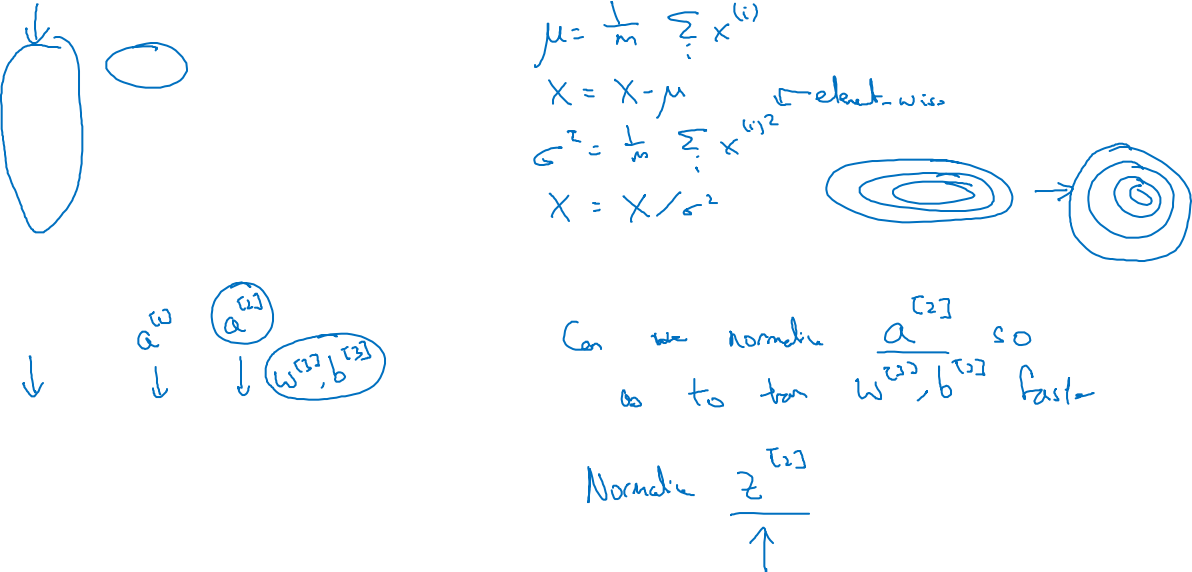 μ = 1/m Σ_i x^(i)
X = X - μ
element-wise
σ² = 1/m Σ_i x^(i)2
X = X / σ²
a^[1] a^[2]
w^[3], b^[3]
Can we normalize a^[2] so
as to train w^[3], b^[3] faster
Normalize z^[2]